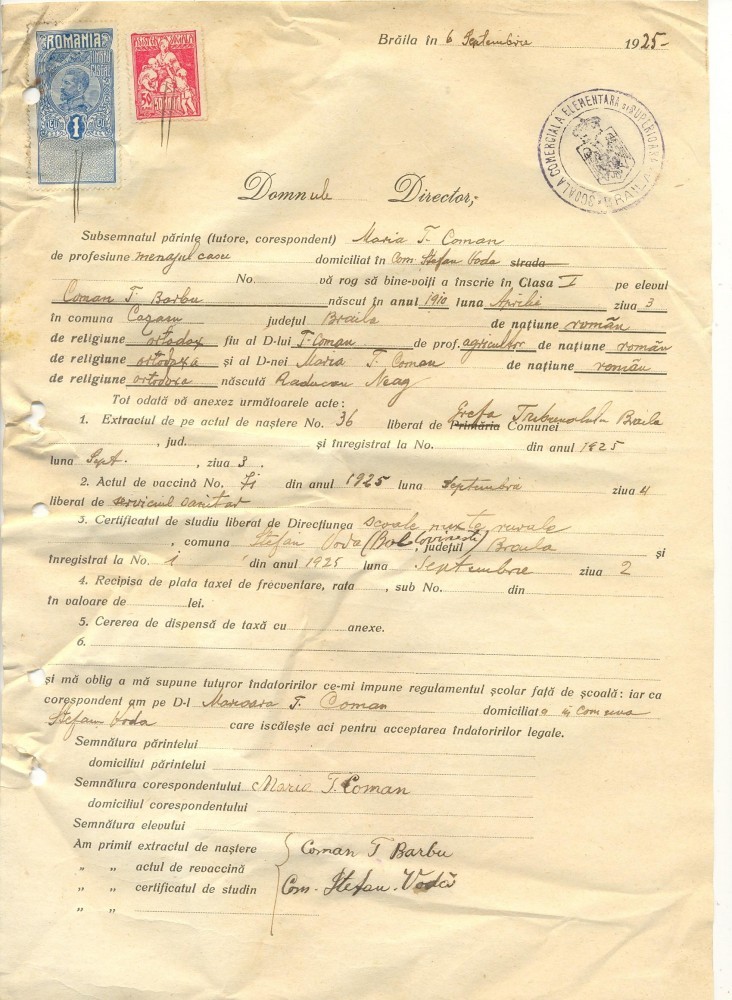 ROMANIA
1
50
Brăila în 6 Septembrie 1925
ȘCOALA COMERCIALA ELEMENTARA și SUPERIOARA BRAILA
Domnule Director,
Subsemnatul părinte (tutore, corespondent) Maria T. Coman
de profesiune menajul casei domiciliat în Com. Ștefan Voda strada
No. vă rog să bine-voiți a înscrie în Clasa I pe elevul
Coman T. Barbu născut în anul 1910 luna Aprilie ziua 3
în comuna Cazasu județul Braila de națiune român
de religiune ortodox fiu al D-lui T. Coman de prof. agricultor de națiune român
de religiune ortodoxa și al D-nei Maria T. Coman de națiune român
de religiune ortodoxa născută Raducan Neag
Tot odată vă anexez următoarele acte:
1. Extractul de pe actul de naștere No. 36 liberat de Primăria Comunei Grefa Tribunalului Braila
, jud. și înregistrat la No. din anul 1925
luna Sept. , ziua 3.
2. Actul de vaccină No. din anul 1925 luna Septembrie ziua 4
liberat de serviciul sanitar
3. Certificatul de studiu liberat de Direcțiunea școale mixte rurale
, comuna Ștefan Voda , județul Braila și
înregistrat la No. 1 din anul 1925 luna Septembrie ziua 2
4. Recipisa de plata taxei de frecventare, rata , sub No. din
în valoare de lei.
5. Cererea de dispensă de taxă cu anexe.
6.
și mă oblig a mă supune tuturor îndatoririlor ce-mi impune regulamentul școlar față de școală: iar ca
corespondent am pe D-l Marioara T. Coman domiciliat a in Comuna
Stefan Voda care iscălește aci pentru acceptarea îndatoririlor legale.
Semnătura părintelui
domiciliul părintelui
Semnătura corespondentului Maria T. Coman
domiciliul corespondentului
Semnătura elevului
Am primit extractul de naștere Coman T Barbu
„ „ actul de revaccină
„ „ certificatul de studin Com. Ștefan-Vodă
„ „